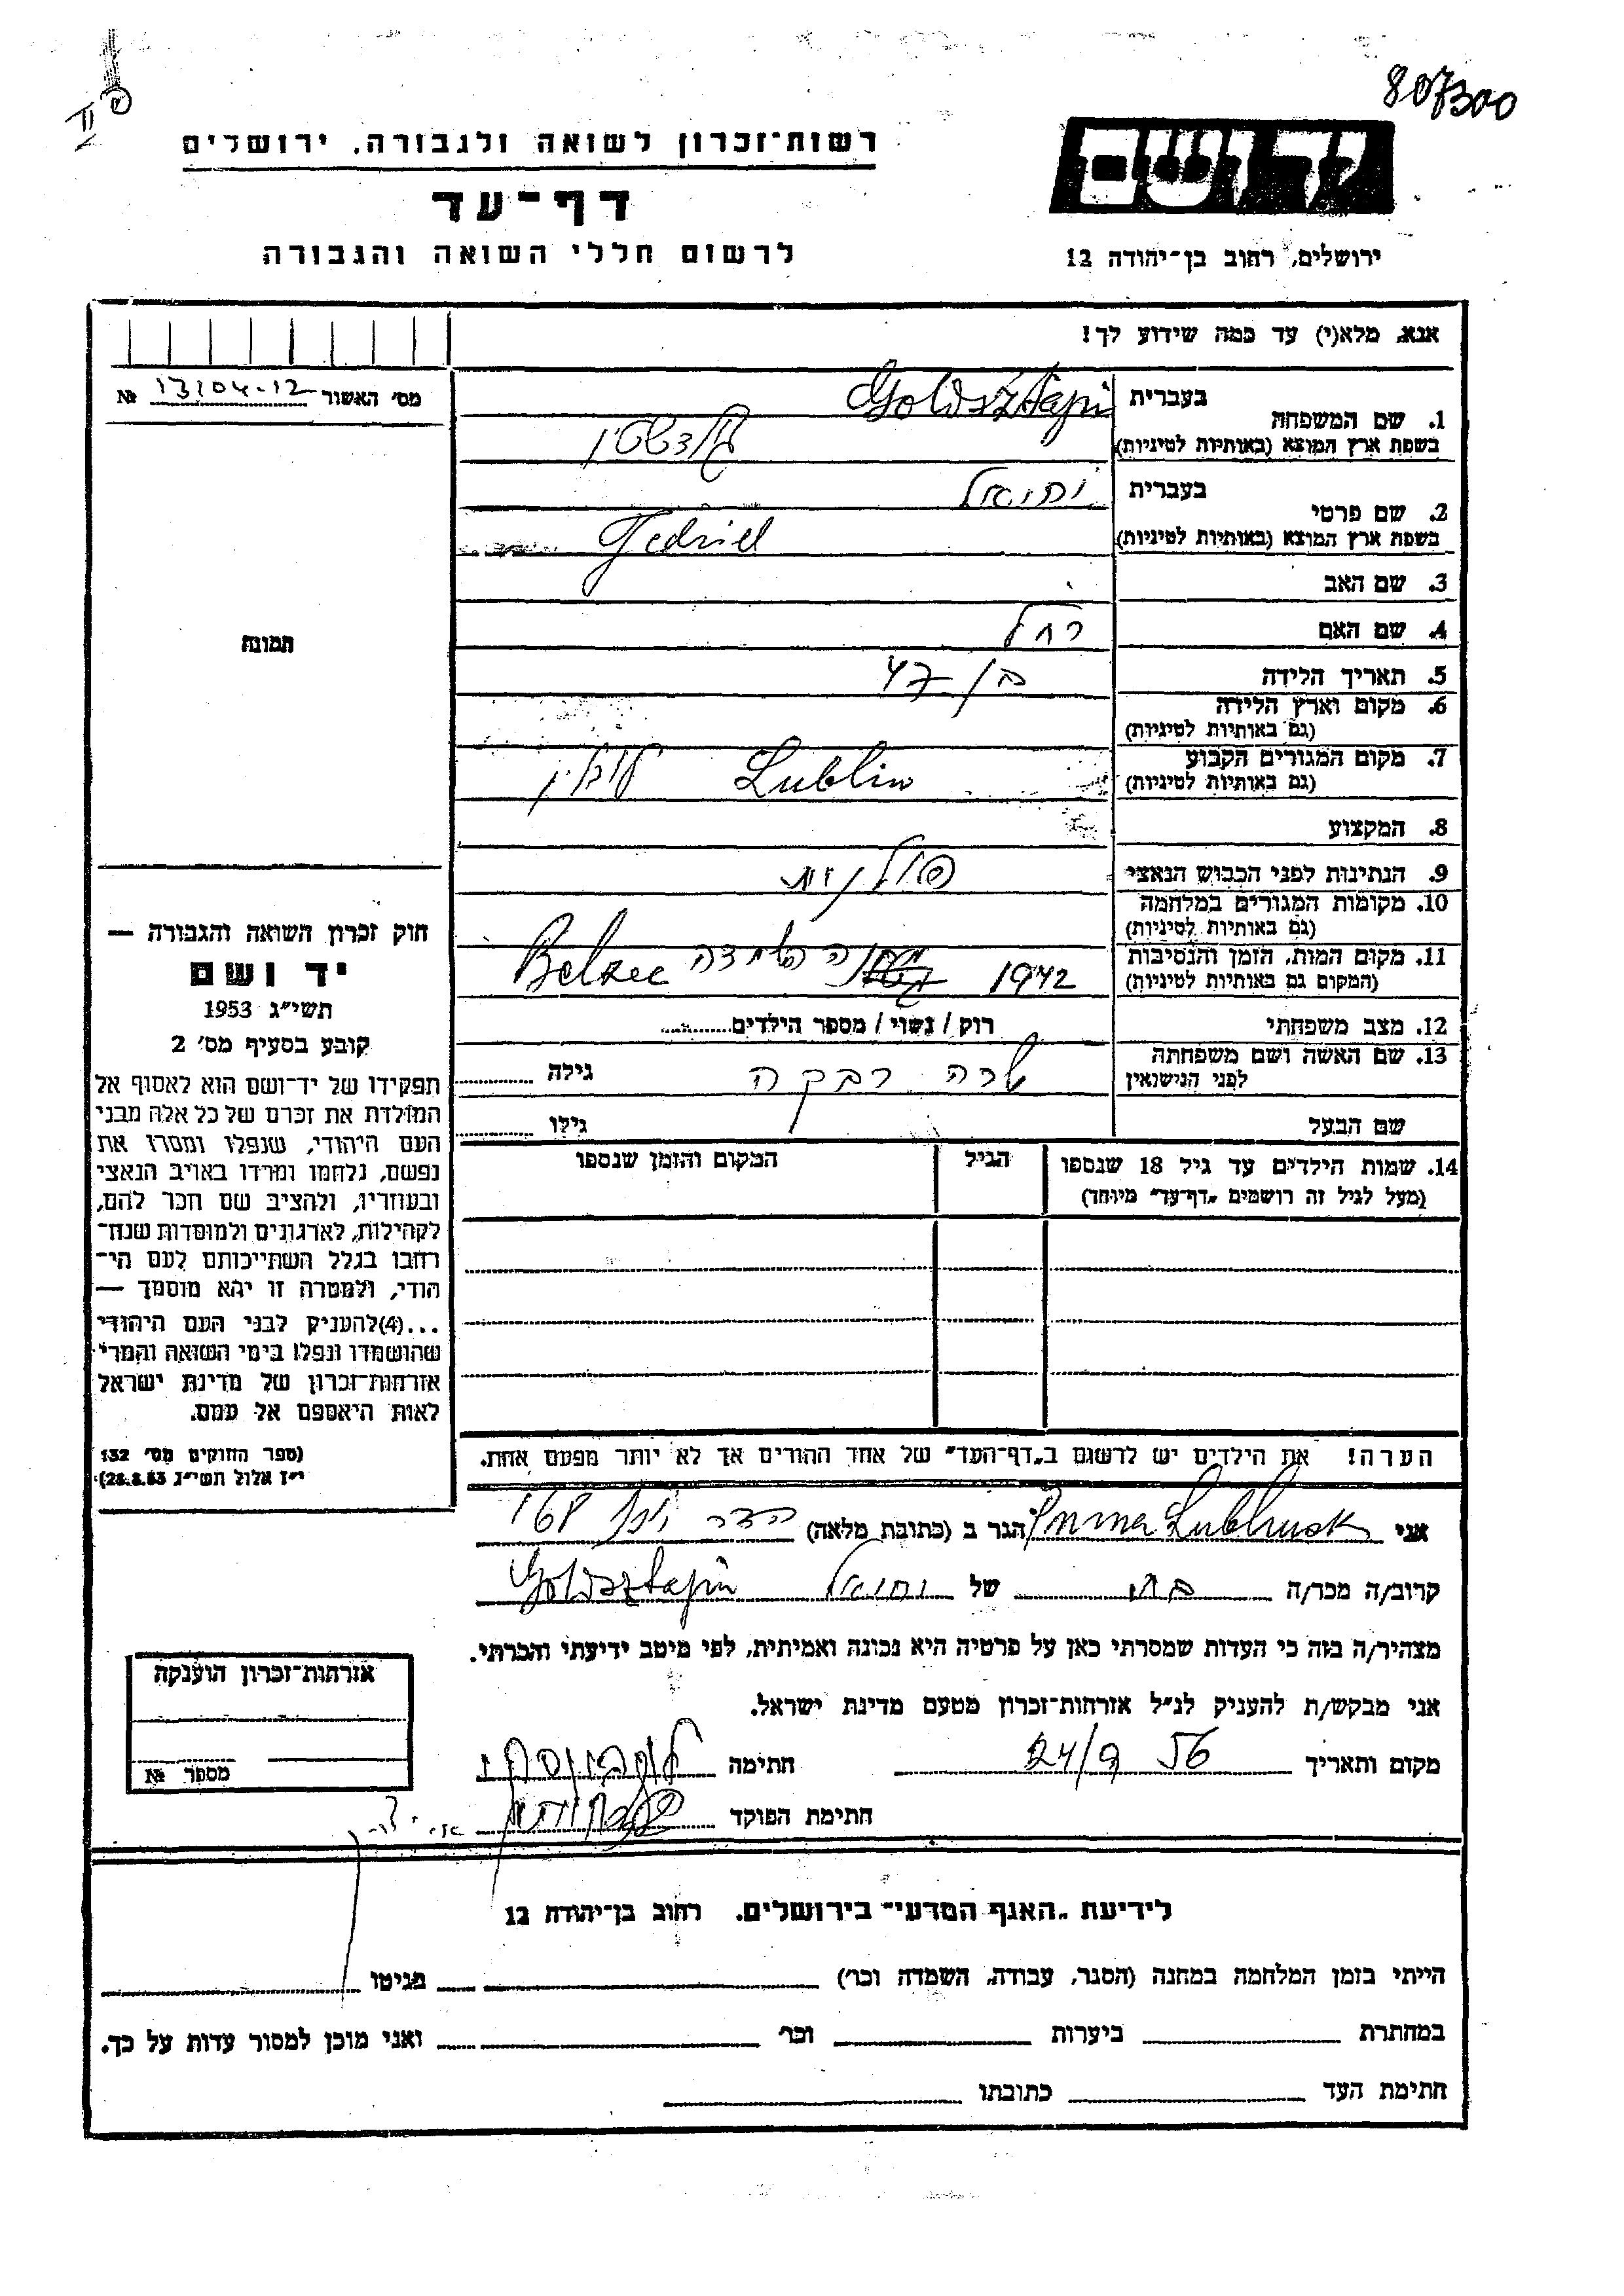 807300
II
רשות־זכרון לשואה ולגבורה, ירושלים
דף־עד
לרשום חללי השואה והגבורה
יד ושם
ירושלים, רחוב בן־יהודה 12
אנא, מלא(י) עד כמה שידוע לך!
מס׳ האשור 13104-12 №
תמונה
1. שם המשפחה
בעברית Goldsztajn
בשפת ארץ המוצא (באותיות לטיניות) גולדשטיין
2. שם פרטי
בעברית יחיאל
בשפת ארץ המוצא (באותיות לטיניות)
3. שם האב
4. שם האם רחל
5. תאריך הלידה בן 47
6. מקום וארץ הלידה
(גם באותיות לטיניות)
7. מקום המגורים הקבוע Lublin לובלין
(גם באותיות לטיניות)
8. המקצוע
9. הנתינות לפני הכבוש הנאצי פולנית
10. מקומות המגורים במלחמה
(גם באותיות לטיניות)
11. מקום המות, הזמן והנסיבות 1942 מחנה השמדה Belzec
(המקום גם באותיות לטיניות)
12. מצב משפחתי רוק / נשוי / מספר הילדים
13. שם האשה ושם משפחתה שרה רבקה גילה
לפני הנישואין
שם הבעל גילו
14. שמות הילדים עד גיל 18 שנספו הגיל המקום והזמן שנספו
(מעל לגיל זה רושמים „דף־עד״ מיוחד)
חוק זכרון השואה והגבורה —
יד ושם
תשי״ג 1953
קובע בסעיף מס׳ 2
תפקידו של יד־ושם הוא לאסוף אל
המולדת את זכרם של כל אלה מבני
העם היהודי, שנפלו ומסרו את
נפשם, נלחמו ומרדו באויב הנאצי
ובעוזריו, ולהציב שם וזכר להם,
לקהילות, לארגונים ולמוסדות שנח־
רבו בגלל השתייכותם לעם הי־
הודי, ולמטרה זו יהא מוסמך —
...(4)להעניק לבני העם היהודי
שהושמדו ונפלו בימי השואה והמרי
אזרחות־זכרון של מדינת ישראל
לאות היאספם אל עמם.
(ספר החוקים מס׳ 132
י״ז אלול תשי״ג 28.8.53)
הערה! את הילדים יש לרשום ב„דף־העד״ של אחד ההורים אך לא יותר מפעם אחת.
אני הגר ב (כתובת מלאה)
קרוב/ה מכר/ה בת של יחיאל Goldsztajn
מצהיר/ה בזה כי העדות שמסרתי כאן על פרטיה היא נכונה ואמיתית, לפי מיטב ידיעתי והכרתי.
אני מבקש/ת להעניק לנ״ל אזרחות־זכרון מטעם מדינת ישראל.
מקום ותאריך 24/9 56 חתימה
חתימת הפוקד
אזרחות־זכרון הוענקה
מספר №
לידיעת „האגף המדעי״ בירושלים. רחוב בן־יהודה 12
הייתי בזמן המלחמה במחנה (הסגר, עבודה, השמדה וכו׳) בגיטו
במחתרת ביערות וכו׳ ואני מוכן למסור עדות על כך.
חתימת העד כתובתו